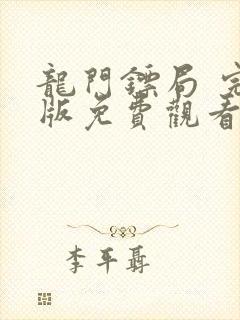 龍門鏢局 完
版免費觀看
李平聶